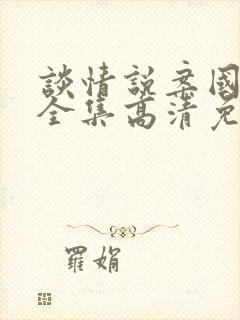 談情說案國
全集高清免
羅娟